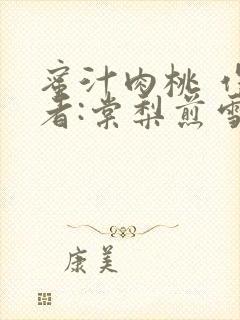 蜜汁肉桃
者:棠梨煎雪
康美